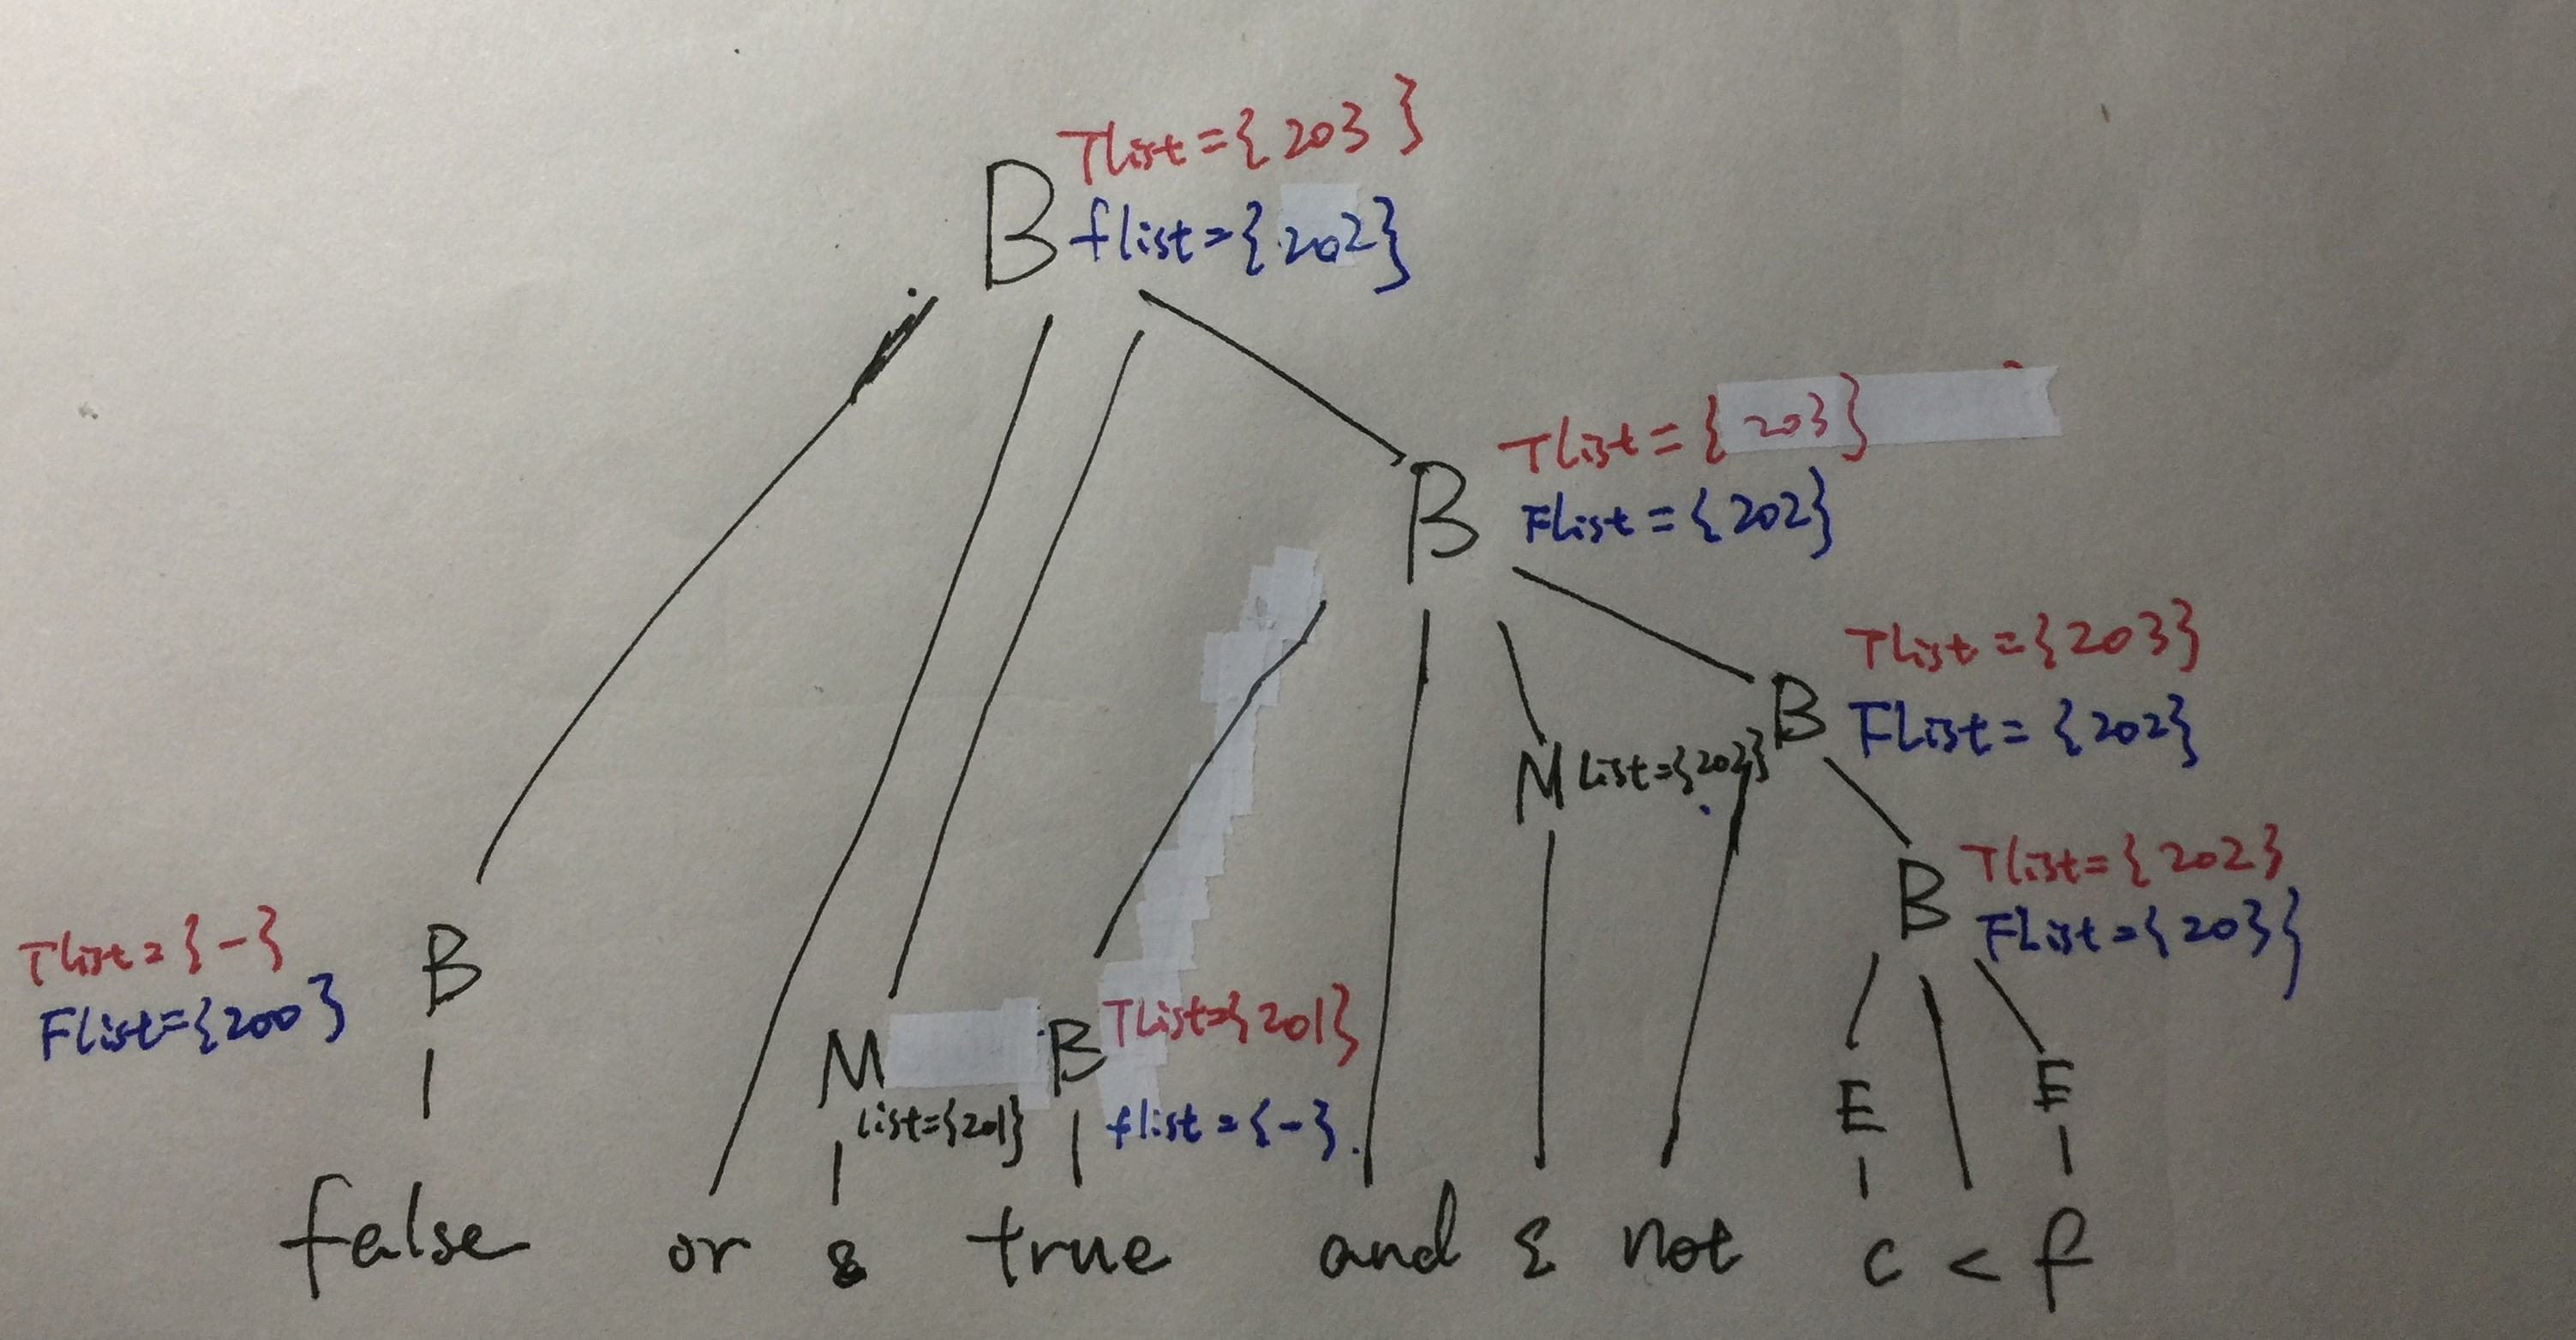 Tlist={203}
B
flist={202}
Tlist={203}
B
Flist={202}
Tlist={203}
B
Flist={202}
M list={202}
Tlist={202}
B
Flist={203}
Tlist={-}
B
Flist={200}
M
list={201}
B
Tlist={201}
flist={-}
E
E
false or ε true and ε not c < f